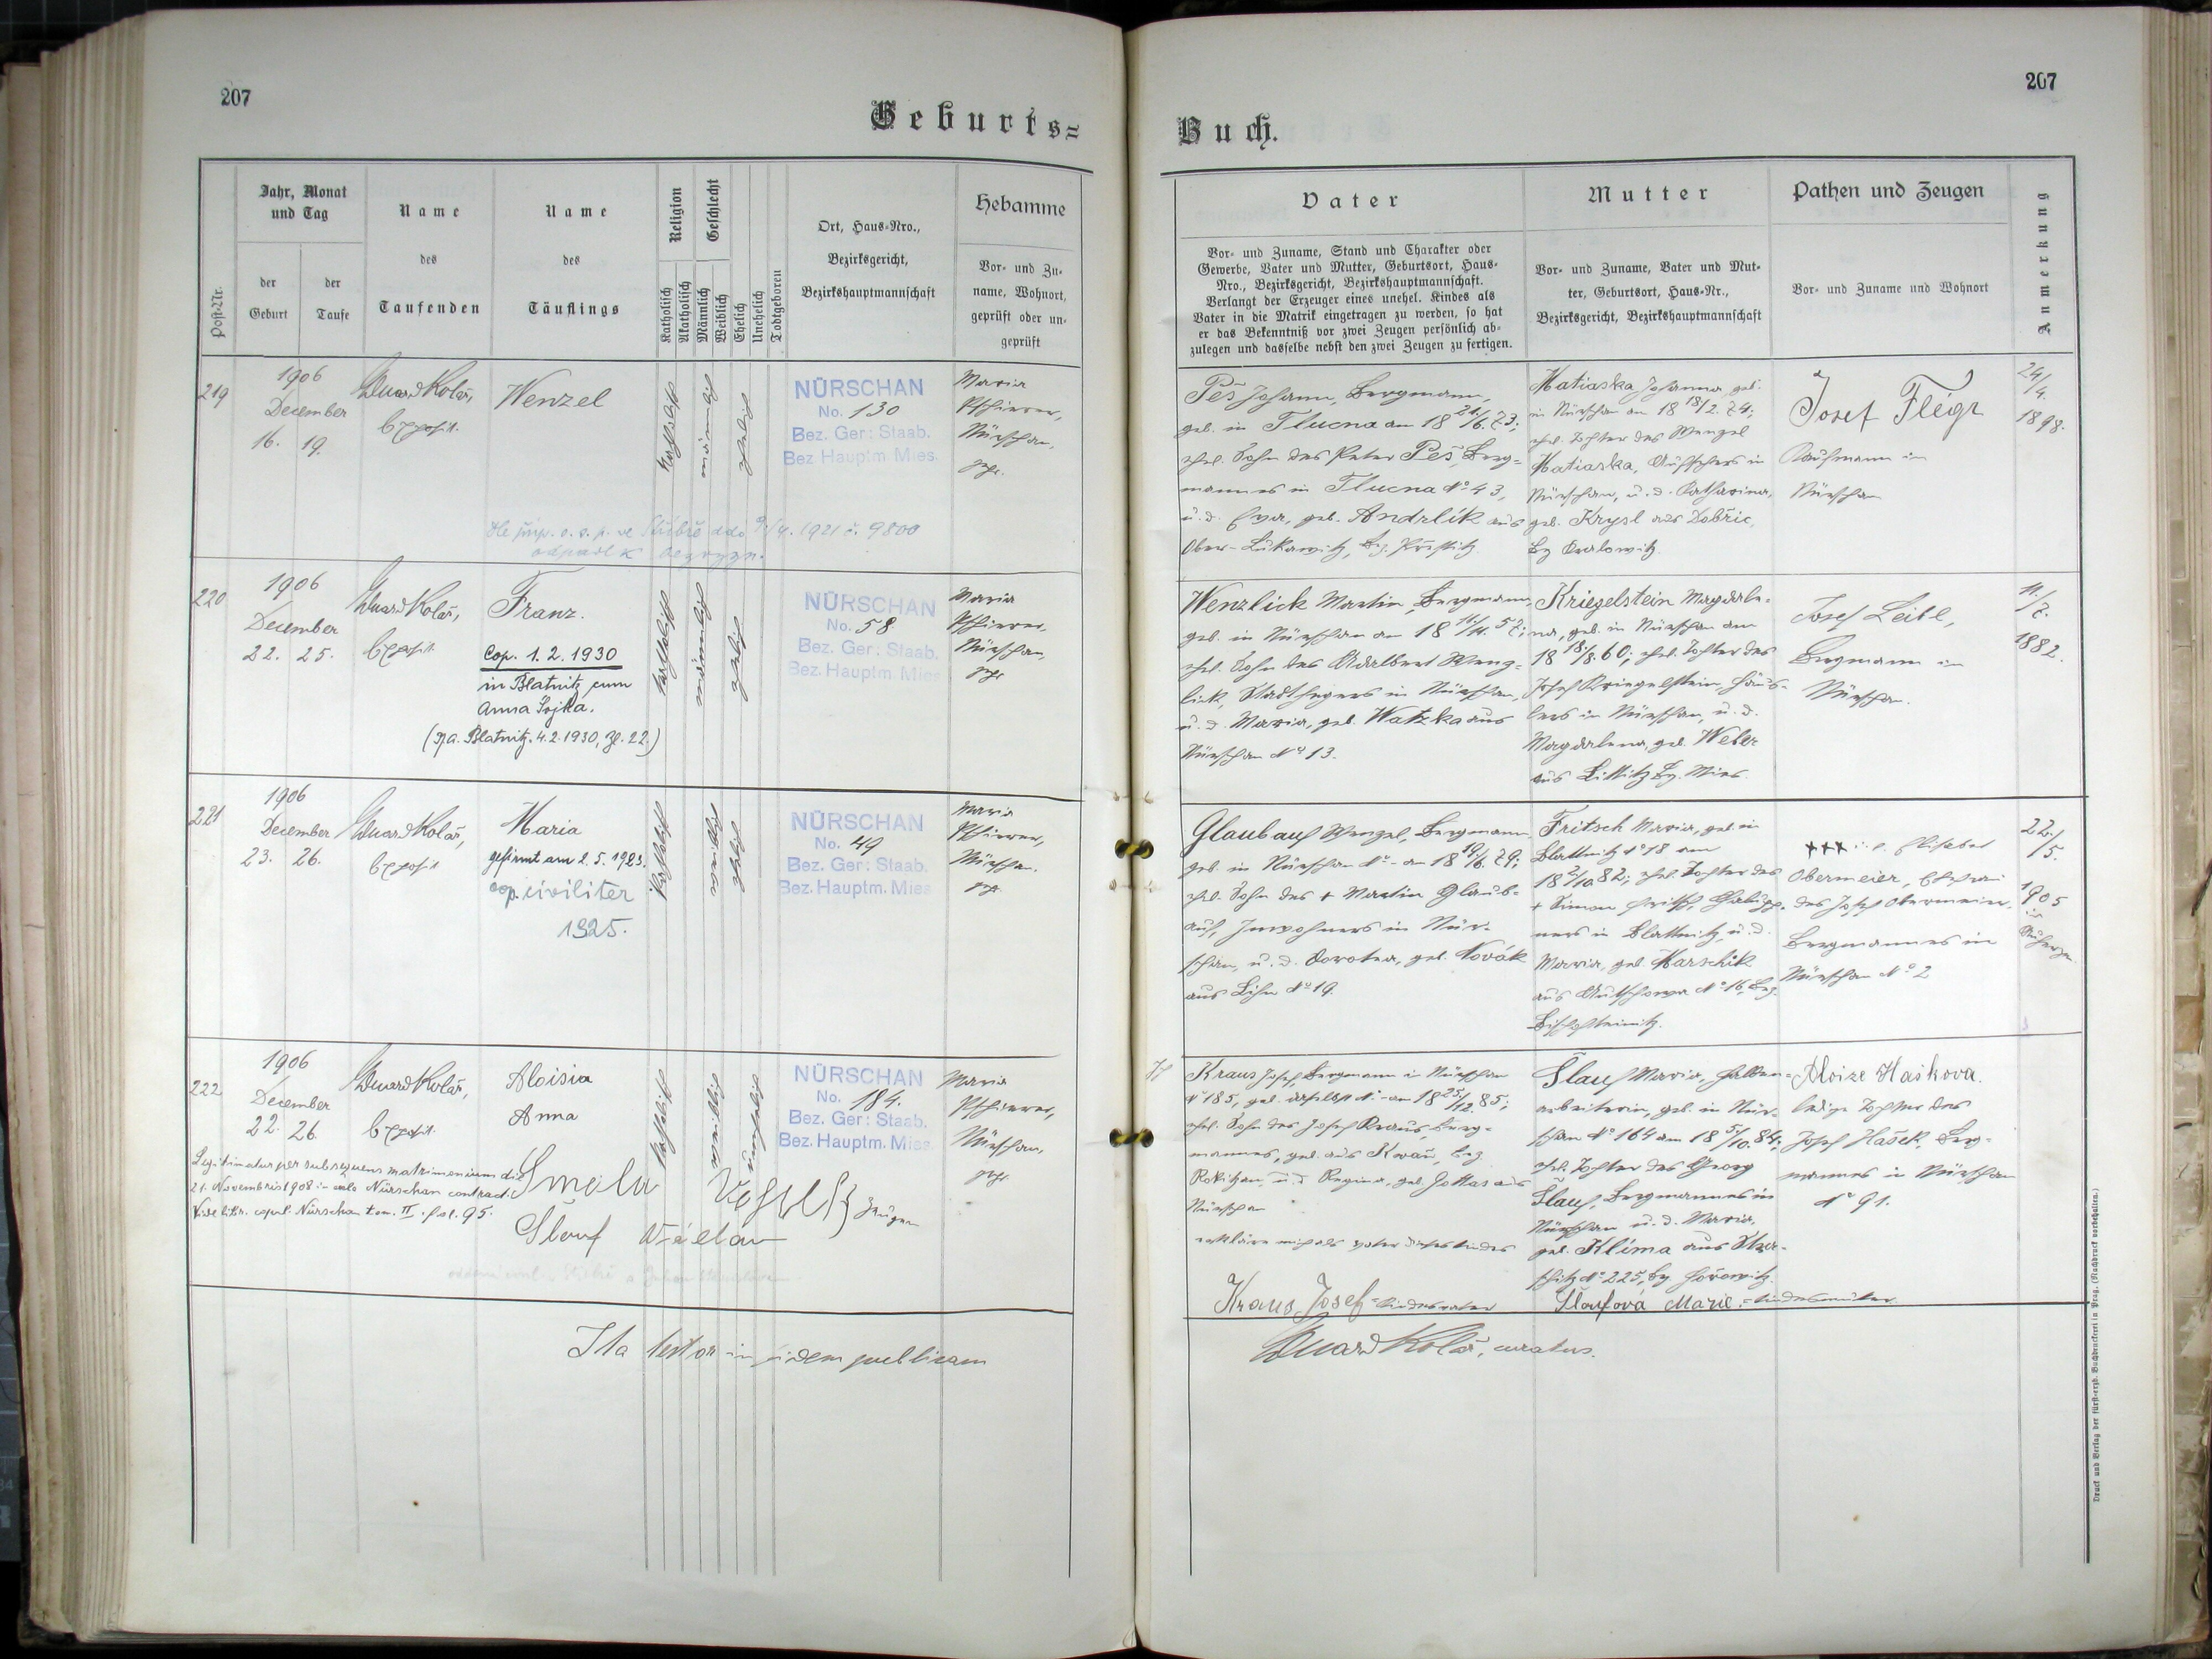 207
Geburts=
Post-Nr.
Jahr, Monat
und Tag
der
Geburt
der
Taufe
Name
des
Taufenden
Name
des
Täuflings
Religion
Katholisch
Akatholisch
Geschlecht
Männlich
Weiblich
Ehelich
Unehelich
Todtgeboren
Ort, Haus-Nro.,
Bezirksgericht,
Bezirkshauptmannschaft
Hebamme
Vor- und Zu-
name, Wohnort,
geprüft oder un-
geprüft
219
1906
December
16. 19.
Eduard Kolář,
Exposit.
Wenzel
katholisch
männlich
ehelich
NÜRSCHAN
No. 130
Bez. Ger: Staab.
Bez Hauptm. Mies.
Maria
Nürschan,
gepr.
9./4. 1921 č. 9800
220
1906
December
22. 25.
Eduard Kolář,
Exposit.
Franz.
Cop. 1. 2. 1930
in Blatnitz cum
Anna Sojka.
(Pa. Blatnitz. 4. 2. 1930, Zl. 22.)
katholisch
männlich
ehelich
NÜRSCHAN
No. 58
Bez. Ger: Staab.
Bez. Hauptm. Mies
Maria
Nürschan,
gepr.
221
1906
December
23. 26.
Eduard Kolář,
Exposit
Maria
gefirmt am 2. 5. 1923.
cop. civiliter
1925.
katholisch
weiblich
ehelich
NÜRSCHAN
No. 49
Bez. Ger: Staab.
Bez. Hauptm. Mies
Maria
Nürschan.
gepr.
222
1906
December
22. 26.
Eduard Kolář,
Exposit.
Aloisia
Anna
katholisch
weiblich
unehelich
NÜRSCHAN
No. 184.
Bez. Ger: Staab.
Bez. Hauptm. Mies
Maria
Nürschan,
gepr.
Legitimatur per subsequens matrimonium die
21. Novembris 1908 Nürschan contract.
Vide libr. copul. Nürschan tom. II. fol. 95.
Smola
Zeugen
Slouf
Ita testor in fidem publicam
207
Buch.
Vater
Vor- und Zuname, Stand und Charakter oder
Gewerbe, Vater und Mutter, Geburtsort, Haus-
Nro., Bezirksgericht, Bezirkshauptmannschaft.
Verlangt der Erzeuger eines unehel. Kindes als
Vater in die Matrik eingetragen zu werden, so hat
er das Bekenntniß vor zwei Zeugen persönlich ab-
zulegen und dasselbe nebst den zwei Zeugen zu fertigen.
Mutter
Vor- und Zuname, Vater und Mut-
ter, Geburtsort, Haus-Nr.,
Bezirksgericht, Bezirkshauptmannschaft
Pathen und Zeugen
Vor- und Zuname und Wohnort
Anmerkung
Peš Johann, Bergmann,
geb. in Tlucna am 18 24/6. 73;
ehel. Sohn des Peter Peš, Berg-
mannes in Tlucna No 43,
u. d. Eva, geb. Andrlík aus
Ober-Lukawitz, Bez. Přestitz
Matiaska Johanna, geb.
in Nürschan am 18 18/2. 74;
ehel. Tochter des Wenzel
Matiaska, Aufsehers in
Nürschan, u. d. Katharina,
geb. Krysl aus Dobřic,
Bez Kralowitz.
Josef Flégr
Kaufmann in
Nürschan
24/
4.
1898.
Wenzlick Martin, Bergmann,
geb. in Nürschan am 18 11/11. 57;
ehel. Sohn des Adalbert Wenz-
lick, Stadthegers in Nürschan,
u. d. Maria, geb. Watzka aus
Nürschan No 13.
Kriegelstein Magdale-
na, geb. in Nürschan am
18 18/8. 60; ehel. Tochter des
Josef Kriegelstein, Häus-
lers in Nürschan, u. d.
Magdalena, geb. Weber
aus Littitz Bez. Mies.
Josef Leibl,
Bergmann in
Nürschan.
11./
7.
1882.
Glaubauf Wenzel, Bergmann,
geb. in Nürschan No - am 18 19/6. 79;
ehel. Sohn des + Martin Glaub-
auf, Inwohners in Nür-
schan, u. d. Dorotea, geb. Novák
aus Lihn No 19.
Fritsch Maria, geb. in
Blattnitz No 18 am
18 2/10 82; ehel. Tochter des
+ Simon Fritsch,
ners in Blattnitz, u. d.
Maria, geb. Marschik
aus No 16, Bez.
Bischofteinitz.
+++ Elisabet
Obermeier, Ehefrau
des Josef Obermeier,
Bergmannes in
Nürschan No 2
22./
5.
1905
in
Kraus Josef, Bergmann in Nürschan
No 185, geb. daselbst am 18 25/12. 85;
ehel. Sohn des Josef Kraus, Berg-
mannes, geb. aus Kwaň, Bez
Rokitzan, u. d. Regina, geb. aus
Nürschan
erkläre mich als Vater dieses Kindes
Kraus Josef = Kindesvater
Slauf Maria, Halden-
arbeiterin, geb. in Nür-
schan No 164 am 18 5/10. 84;
ehel. Tochter des Georg
Slauf, Bergmannes in
Nürschan u. d. Maria,
geb. Klima aus
No 225, Bez Hořowitz.
Sloufová Marie = Kindesmutter
Aloize Haškova.
ledige Tochter des
Josef Hašek, Berg-
mannes in Nürschan
No 91.
Eduard Kolář, curatus.
Druck und Verlag der fürst-erzb. Buchdruckerei in Prag. (Nachdruck vorbehalten.)